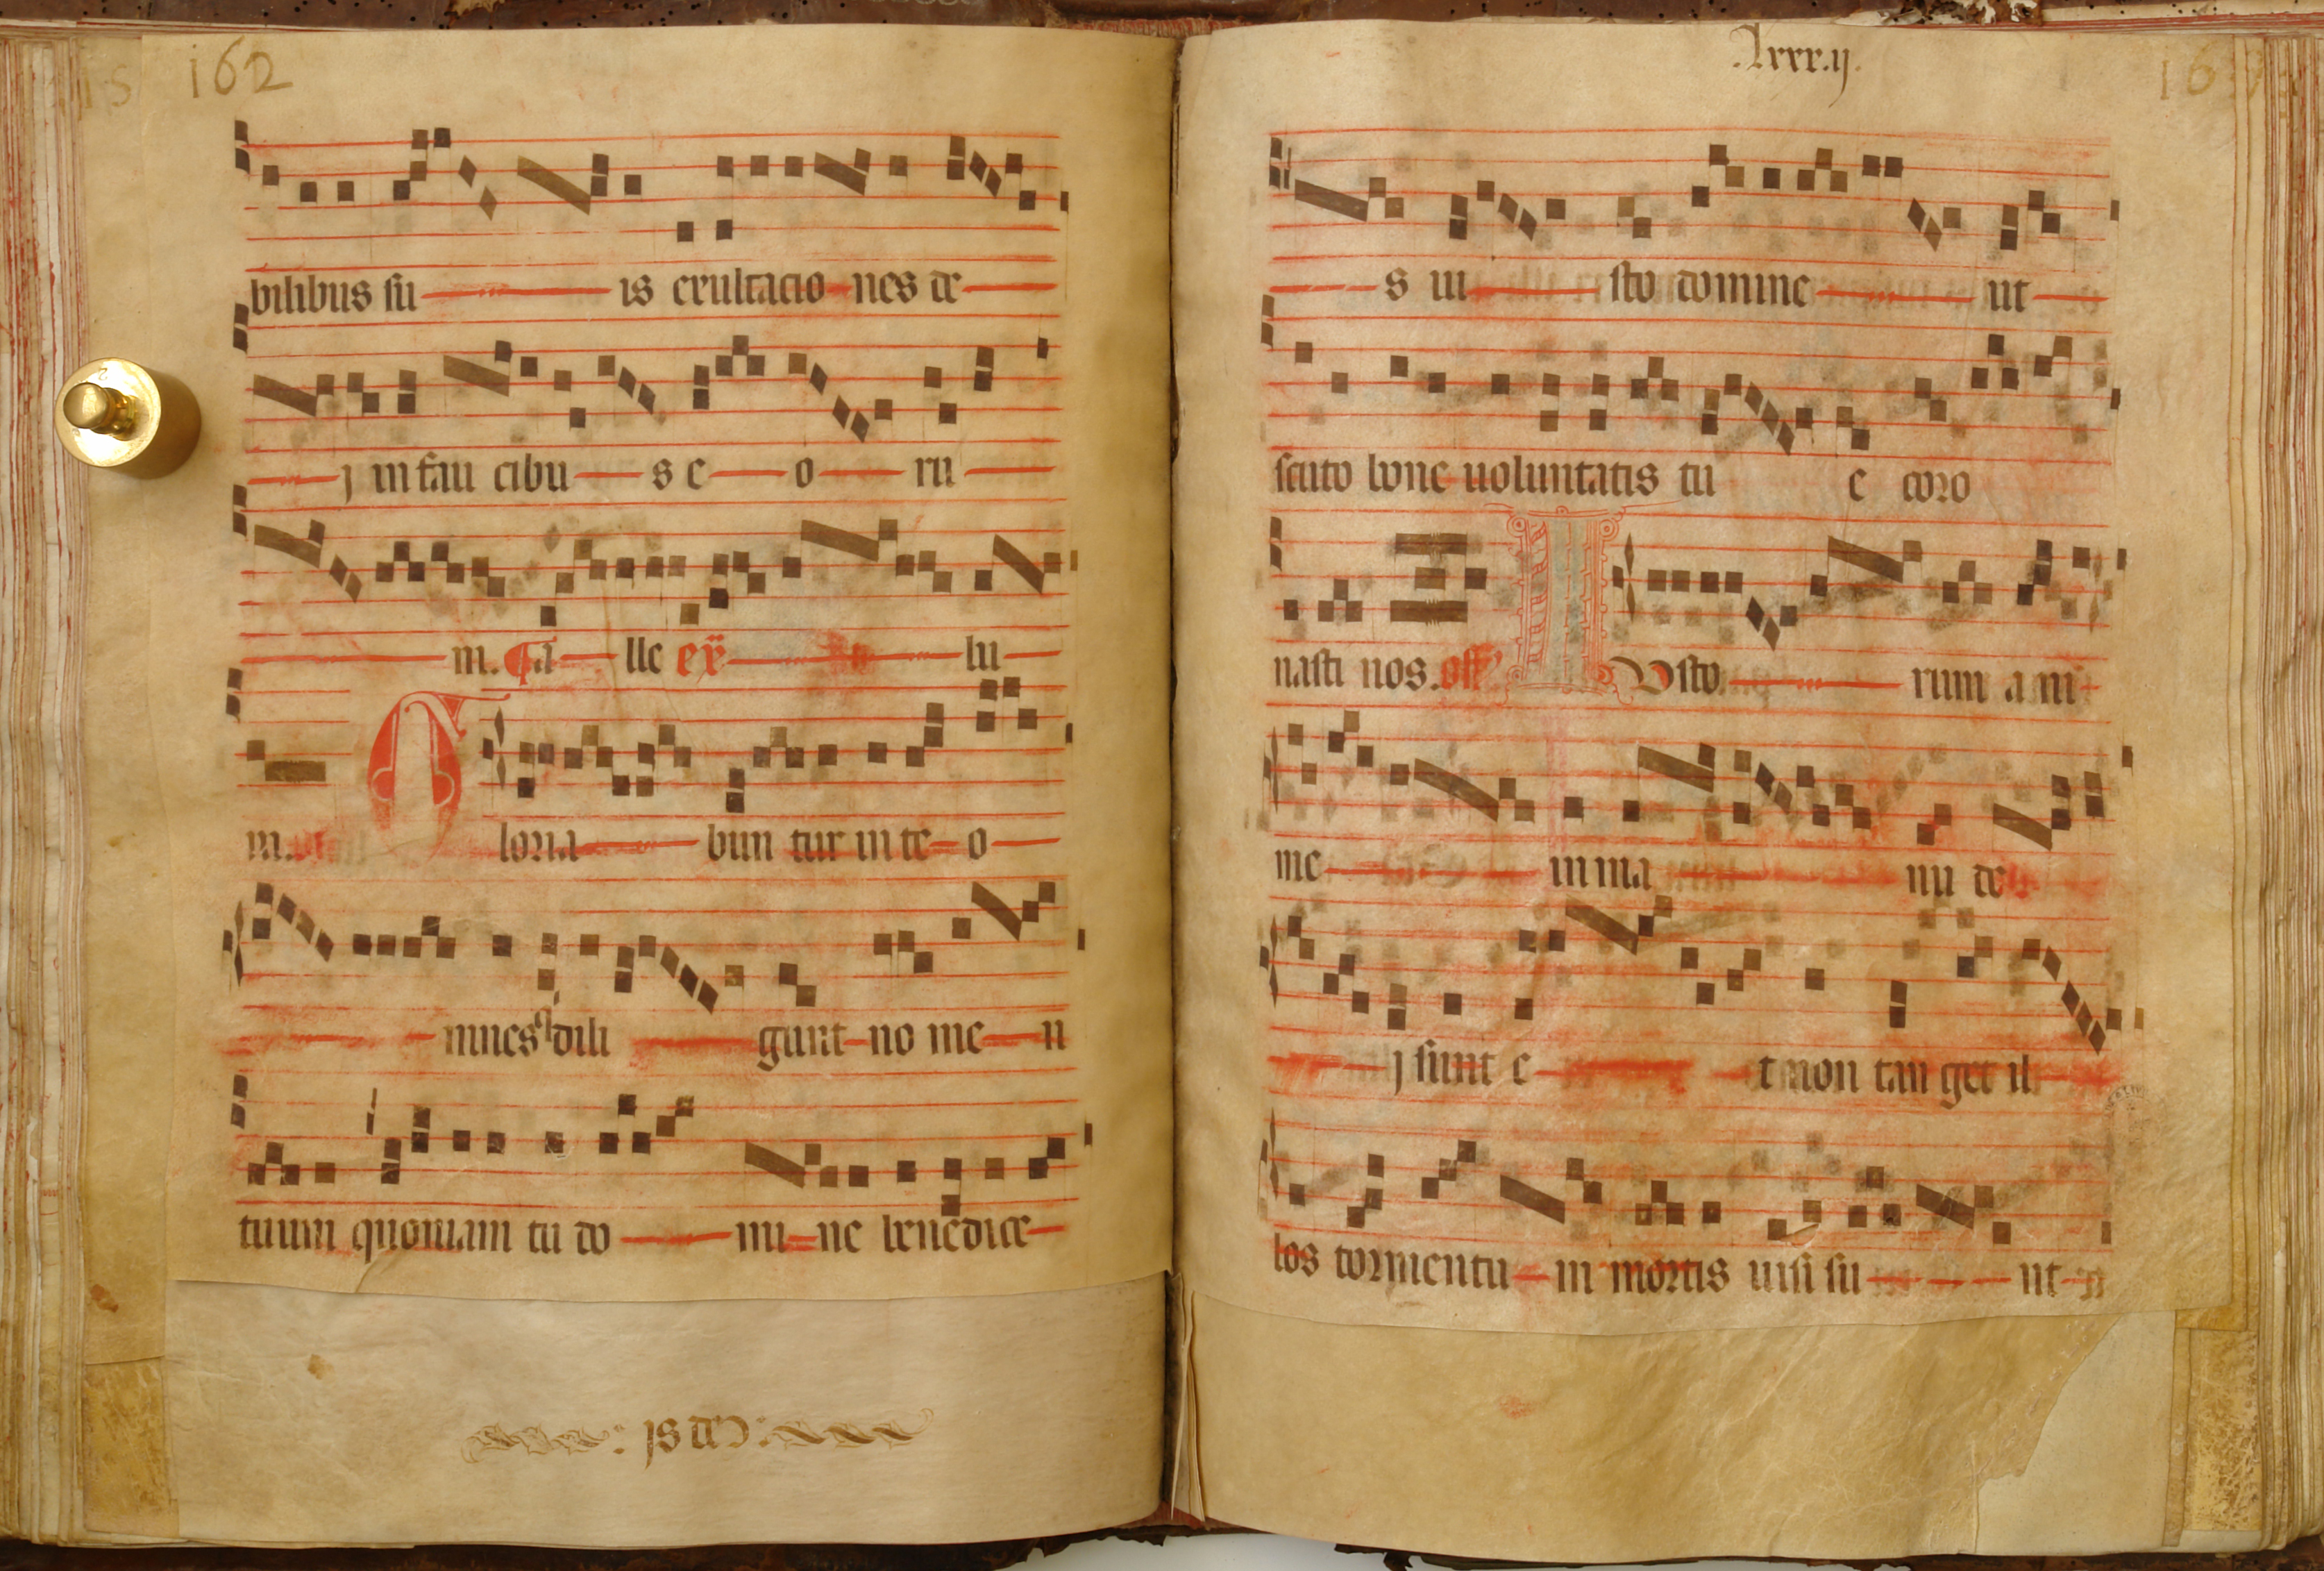 162
bilibus su is exultacio nes de
j in fau cibu s e o ru
m. A lle ex lu
m. loria bun tur in te o
mnes q dili gunt no me n
tuum quoniam tu do mi ne benedice
.lxxx.ij.
s iu sto domine ut
scuto bone uoluntatis tu e coro
nasti nos. off I Vsto rum a ni
me in ma nu de
j sunt e t non tan get il
los tormentu m mortis uisi su nt